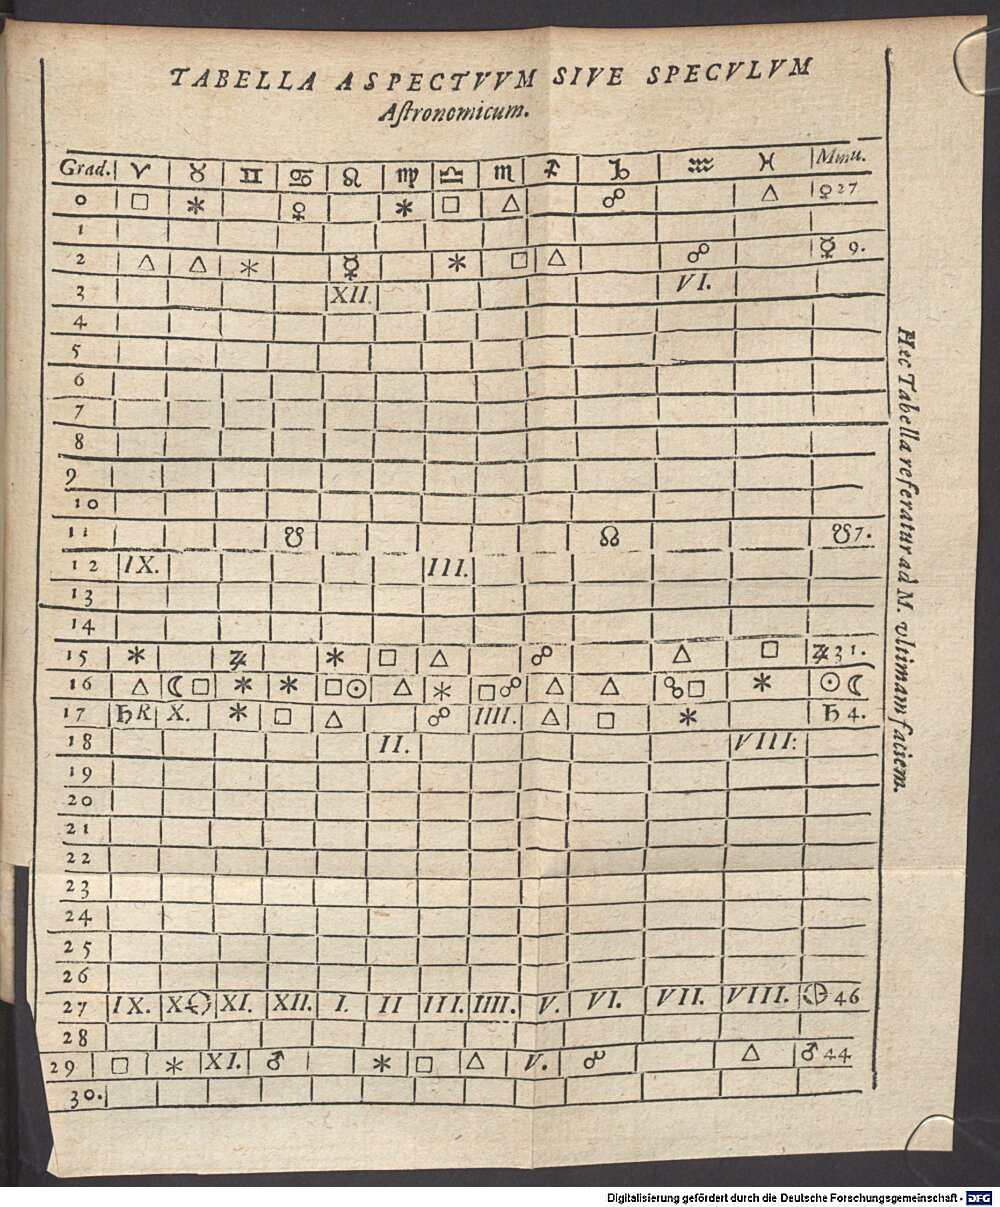 TABELLA ASPECTVVM SIVE SPECVLVM
Aſtronomicum.
Grad. ♈ ♉ ♊ ♋ ♌ ♍ ♎ ♏ ♐ ♑ ♒ ♓ Minu.
0 □ ⚹ ♀ ⚹ □ △ ☍ △ ♀ 27
1
2 △ △ ⚹ ☿ ⚹ □ △ ☍ ☿ 9.
3 XII. VI.
4
5
6
7
8
9
10
11 ☋ ☊ ☋ 7.
12 IX. III.
13
14
15 ⚹ ♃ ⚹ □ △ ☍ △ □ ♃ 31.
16 △ ☾ □ ⚹ ⚹ □ ☉ △ ⚹ □ ☍ △ △ ☍ □ ⚹ ☉ ☾
17 ♄ R. X. ⚹ □ △ ☍ IIII. △ □ ⚹ ♄ 4.
18 II. VIII:
19
20
21
22
23
24
25
26
27 IX. X XI. XII. I. II III. IIII. V. VI. VII. VIII. 46
28
29 □ ⚹ XI. ♂ ⚹ □ △ V. ☍ △ ♂ 44
30.
Hec Tabella referatur ad M. vltimam faciem.
Digitalisierung gefördert durch die Deutsche Forschungsgemeinschaft - DFG